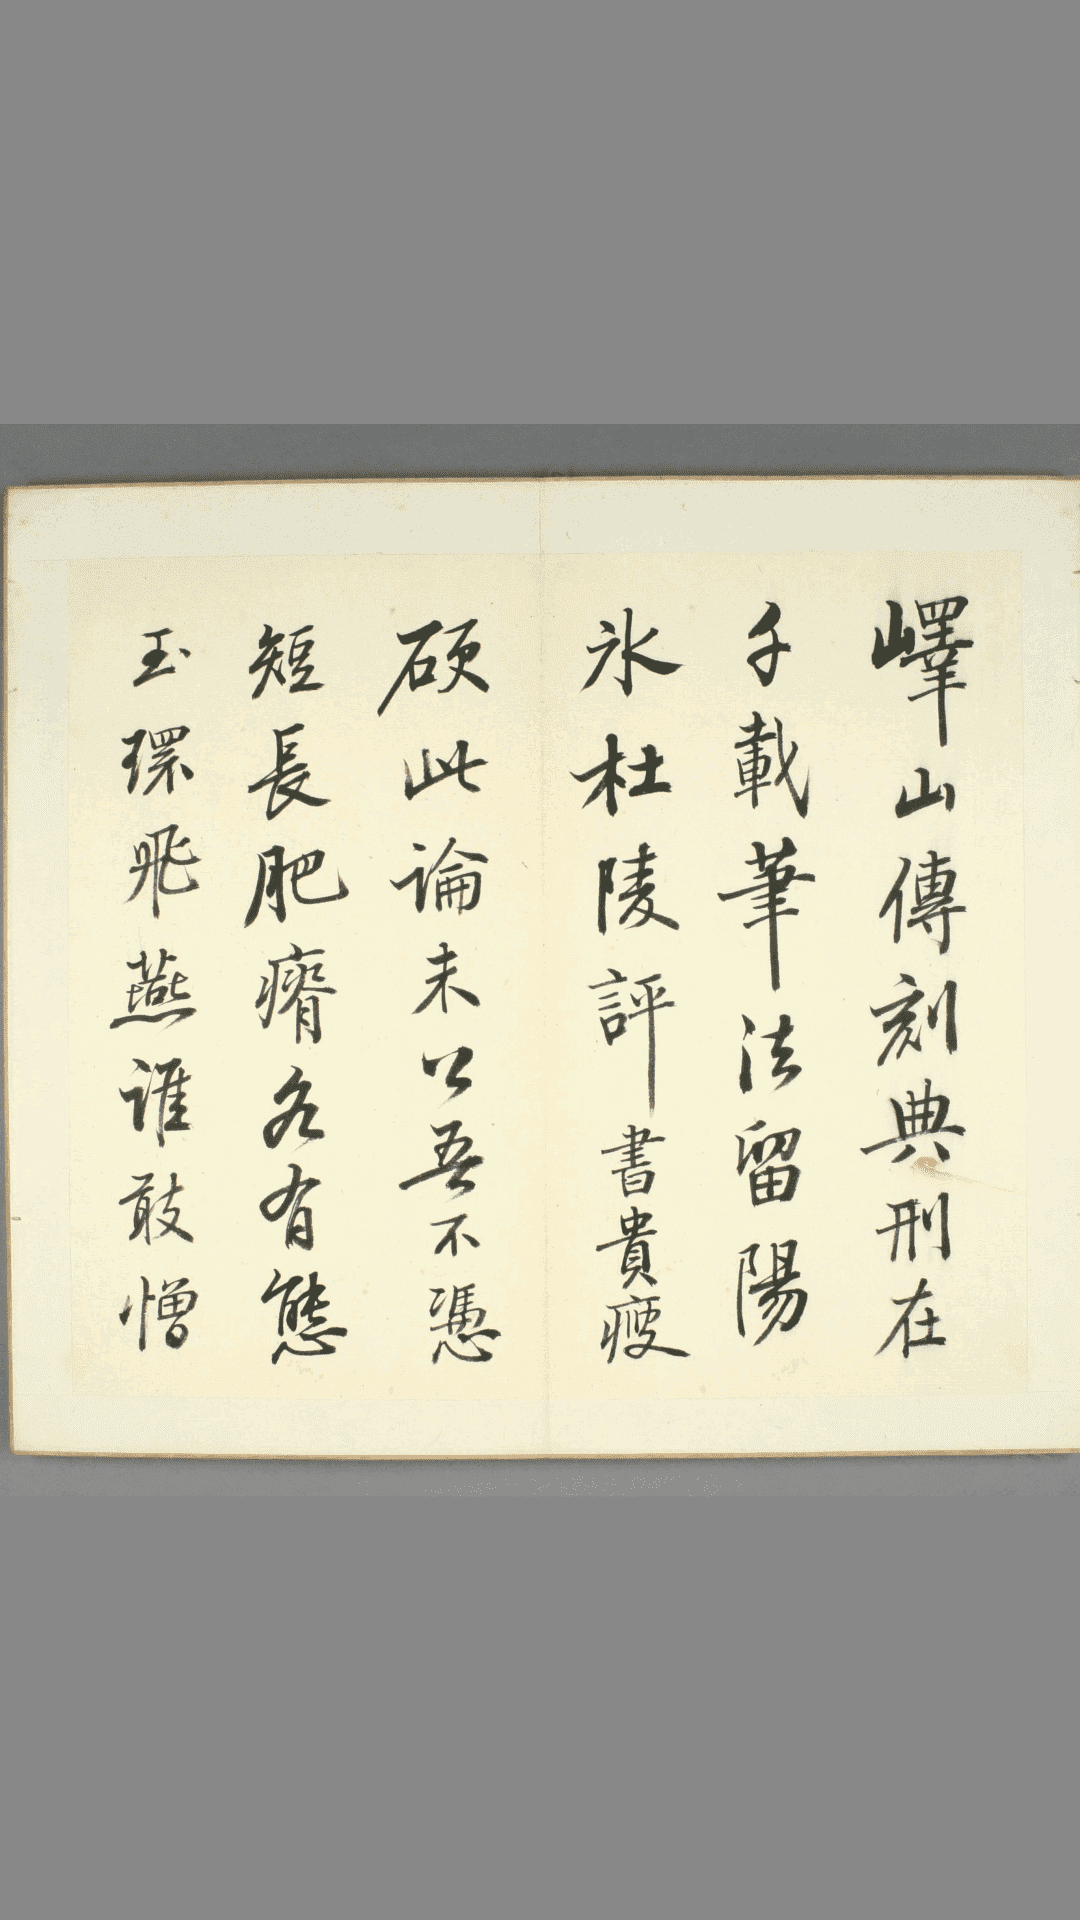 嶧山傳刻典刑在
千載筆法留陽
冰杜陵評書貴瘦
硬此論未公吾不憑
短長肥瘠各有態
玉環飛燕誰敢憎